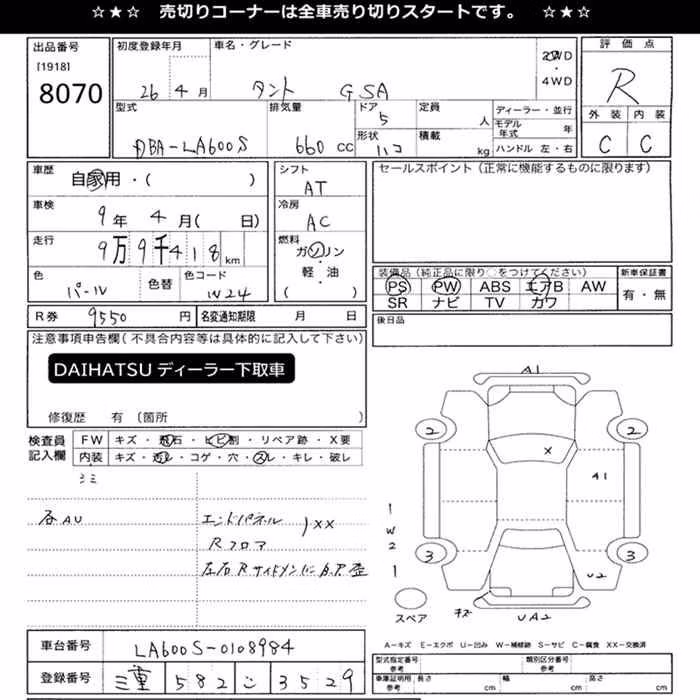 ☆★☆　売切りコーナーは全車売り切りスタートです。　☆★☆
出品番号
[1918]
8070
初度登録年月
26 年 4 月
車名・グレード
タント GSA
2WD
4WD
評価点
R
型式
DBA-LA600S
排気量
660 cc
ドア
5
形状
ハコ
定員
人
積載
kg
ディーラー・並行
モデル年式 年
ハンドル 左・右
外装 内装
C C
車歴
自家用・( )
車検
9年 4月( 日)
走行
9万9千418km
色
パール
色替
色コード
W24
シフト
AT
冷房
AC
燃料
ガソリン
・
軽・油
( )
セールスポイント(正常に機能するものに限ります)
装備品(純正品に限り○をつけてください)
PS PW ABS エアB AW
SR ナビ TV カワ
新車保証書
有・無
R券 9550 円 名変通知期限 月 日
後日品
注意事項申告欄(不具合内容等は具体的に記入して下さい)
DAIHATSU ディーラー下取車
修復歴 有 〔箇所
検査員
記入欄
FW キズ・飛石・ヒビ割・リペア跡・X要
内装 キズ・汚レ・コゲ・穴・スレ・キレ・破レ
ヌミ
各AU
エンドパネル )XX
Rフロア
左右Rサイドメンバ
A1
2 2
X
A1
1
W
2
3 3
1
U2
スペア
キズ
UA2
A-キズ E-エクボ U-凹み W-補修跡 S-サビ C-腐食 XX-交換済
車台番号 LA600S-0108984
登録番号 三重 582 こ 3529
型式指定番号
参考
類別区分番号
参考
車庫証明用
参考
長さ cm 幅 cm 高さ cm